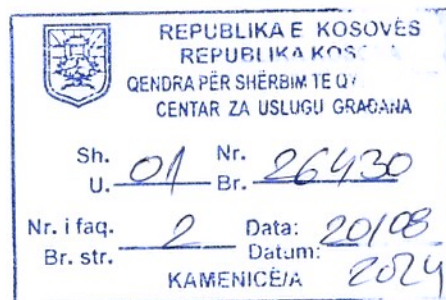 REPUBLIKA E KOSOVËS
REPUBLIKA KOS
QENDRA PËR SHËRBIM TE Q
CENTAR ZA USLUGU GRAĐANA
Sh. Nr.
U. 01 Br. 26430
Nr. i faq. 2 Data: 20/08
Br. str. Datum: 2024
KAMENICË/A